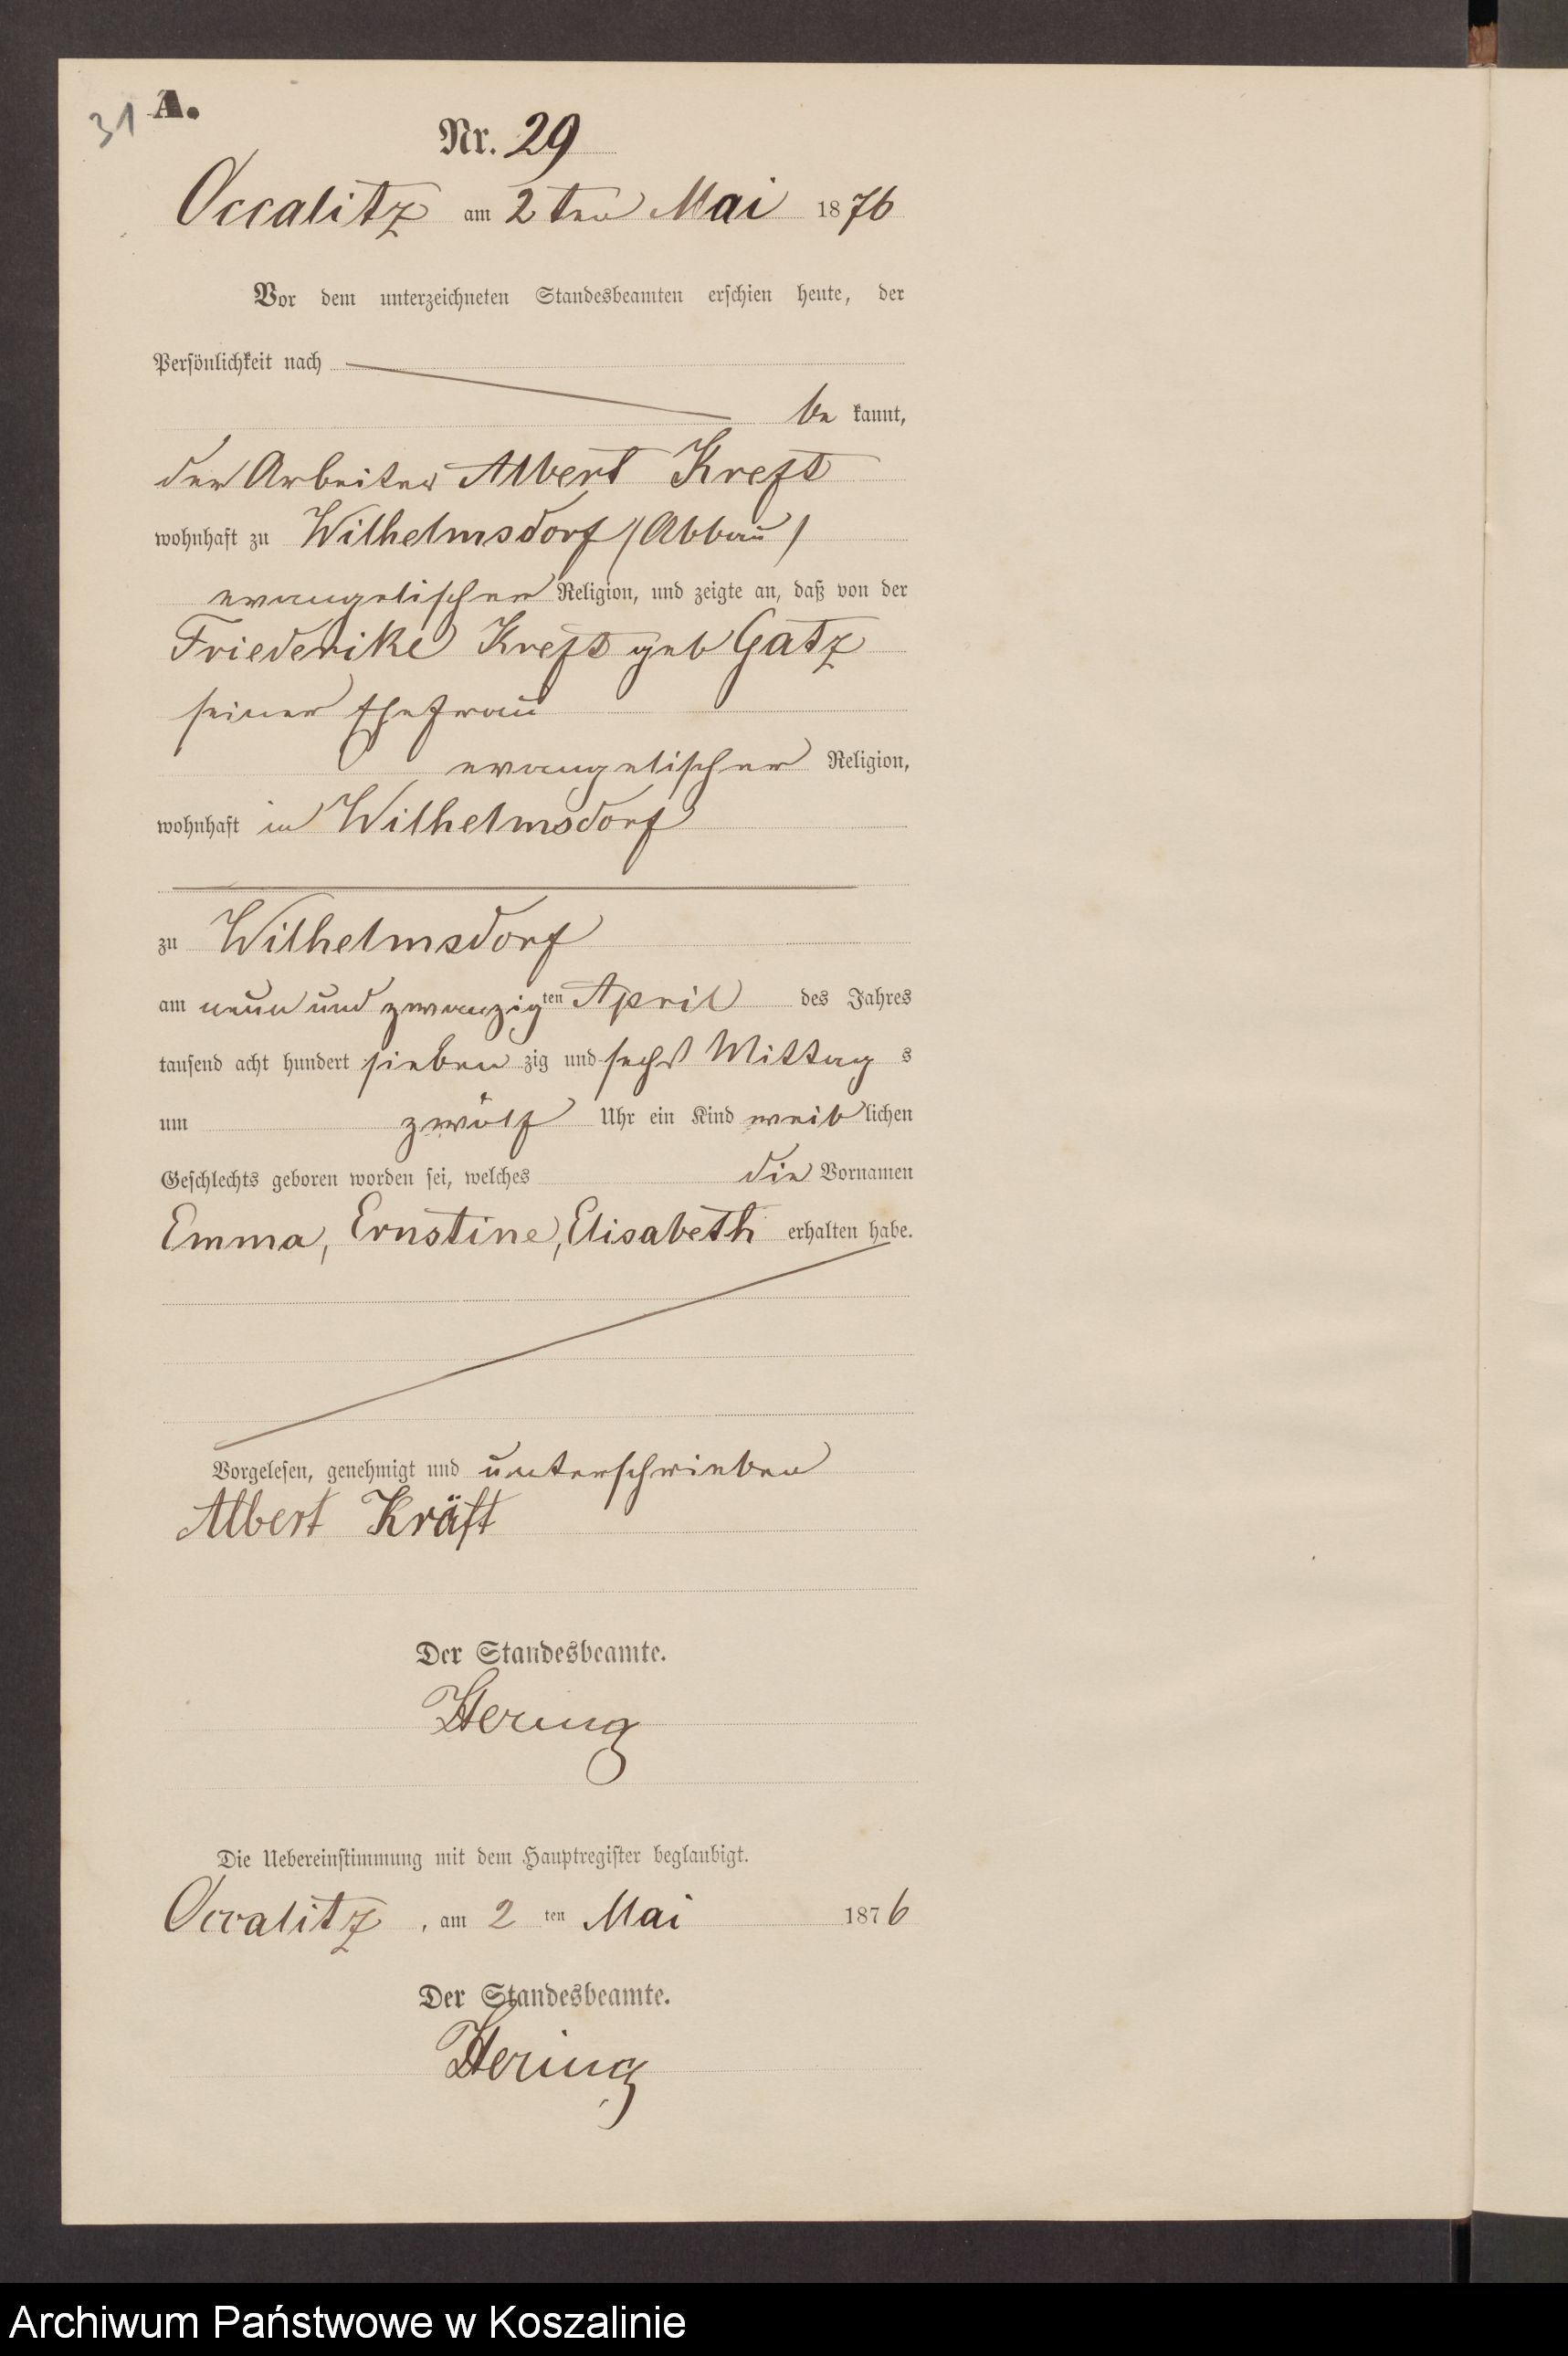 31 A.
Nr. 29
Occalitz am 2ten Mai 1876
Vor dem unterzeichneten Standesbeamten erschien heute, der
Persönlichkeit nach
be kannt,
der Arbeiter Albert Kreft
wohnhaft zu Wilhelmsdorf (Abbau)
evangelischer Religion, und zeigte an, daß von der
Friederike Kreft geb Gatz
seiner Ehefrau
evangelischer Religion,
wohnhaft in Wilhelmsdorf
zu Wilhelmsdorf
am neun und zwanzig ten April des Jahres
tausend acht hundert sieben zig und sechs Mittag s
um zwölf Uhr ein Kind weib lichen
Geschlechts geboren worden sei, welches die Vornamen
Emma, Ernstine, Elisabeth erhalten habe.
Vorgelesen, genehmigt und unterschrieben
Albert Kräft
Der Standesbeamte.
Hering
Die Uebereinstimmung mit dem Hauptregister beglaubigt.
Occalitz, am 2 ten Mai 1876
Der Standesbeamte.
Hering
Archiwum Państwowe w Koszalinie